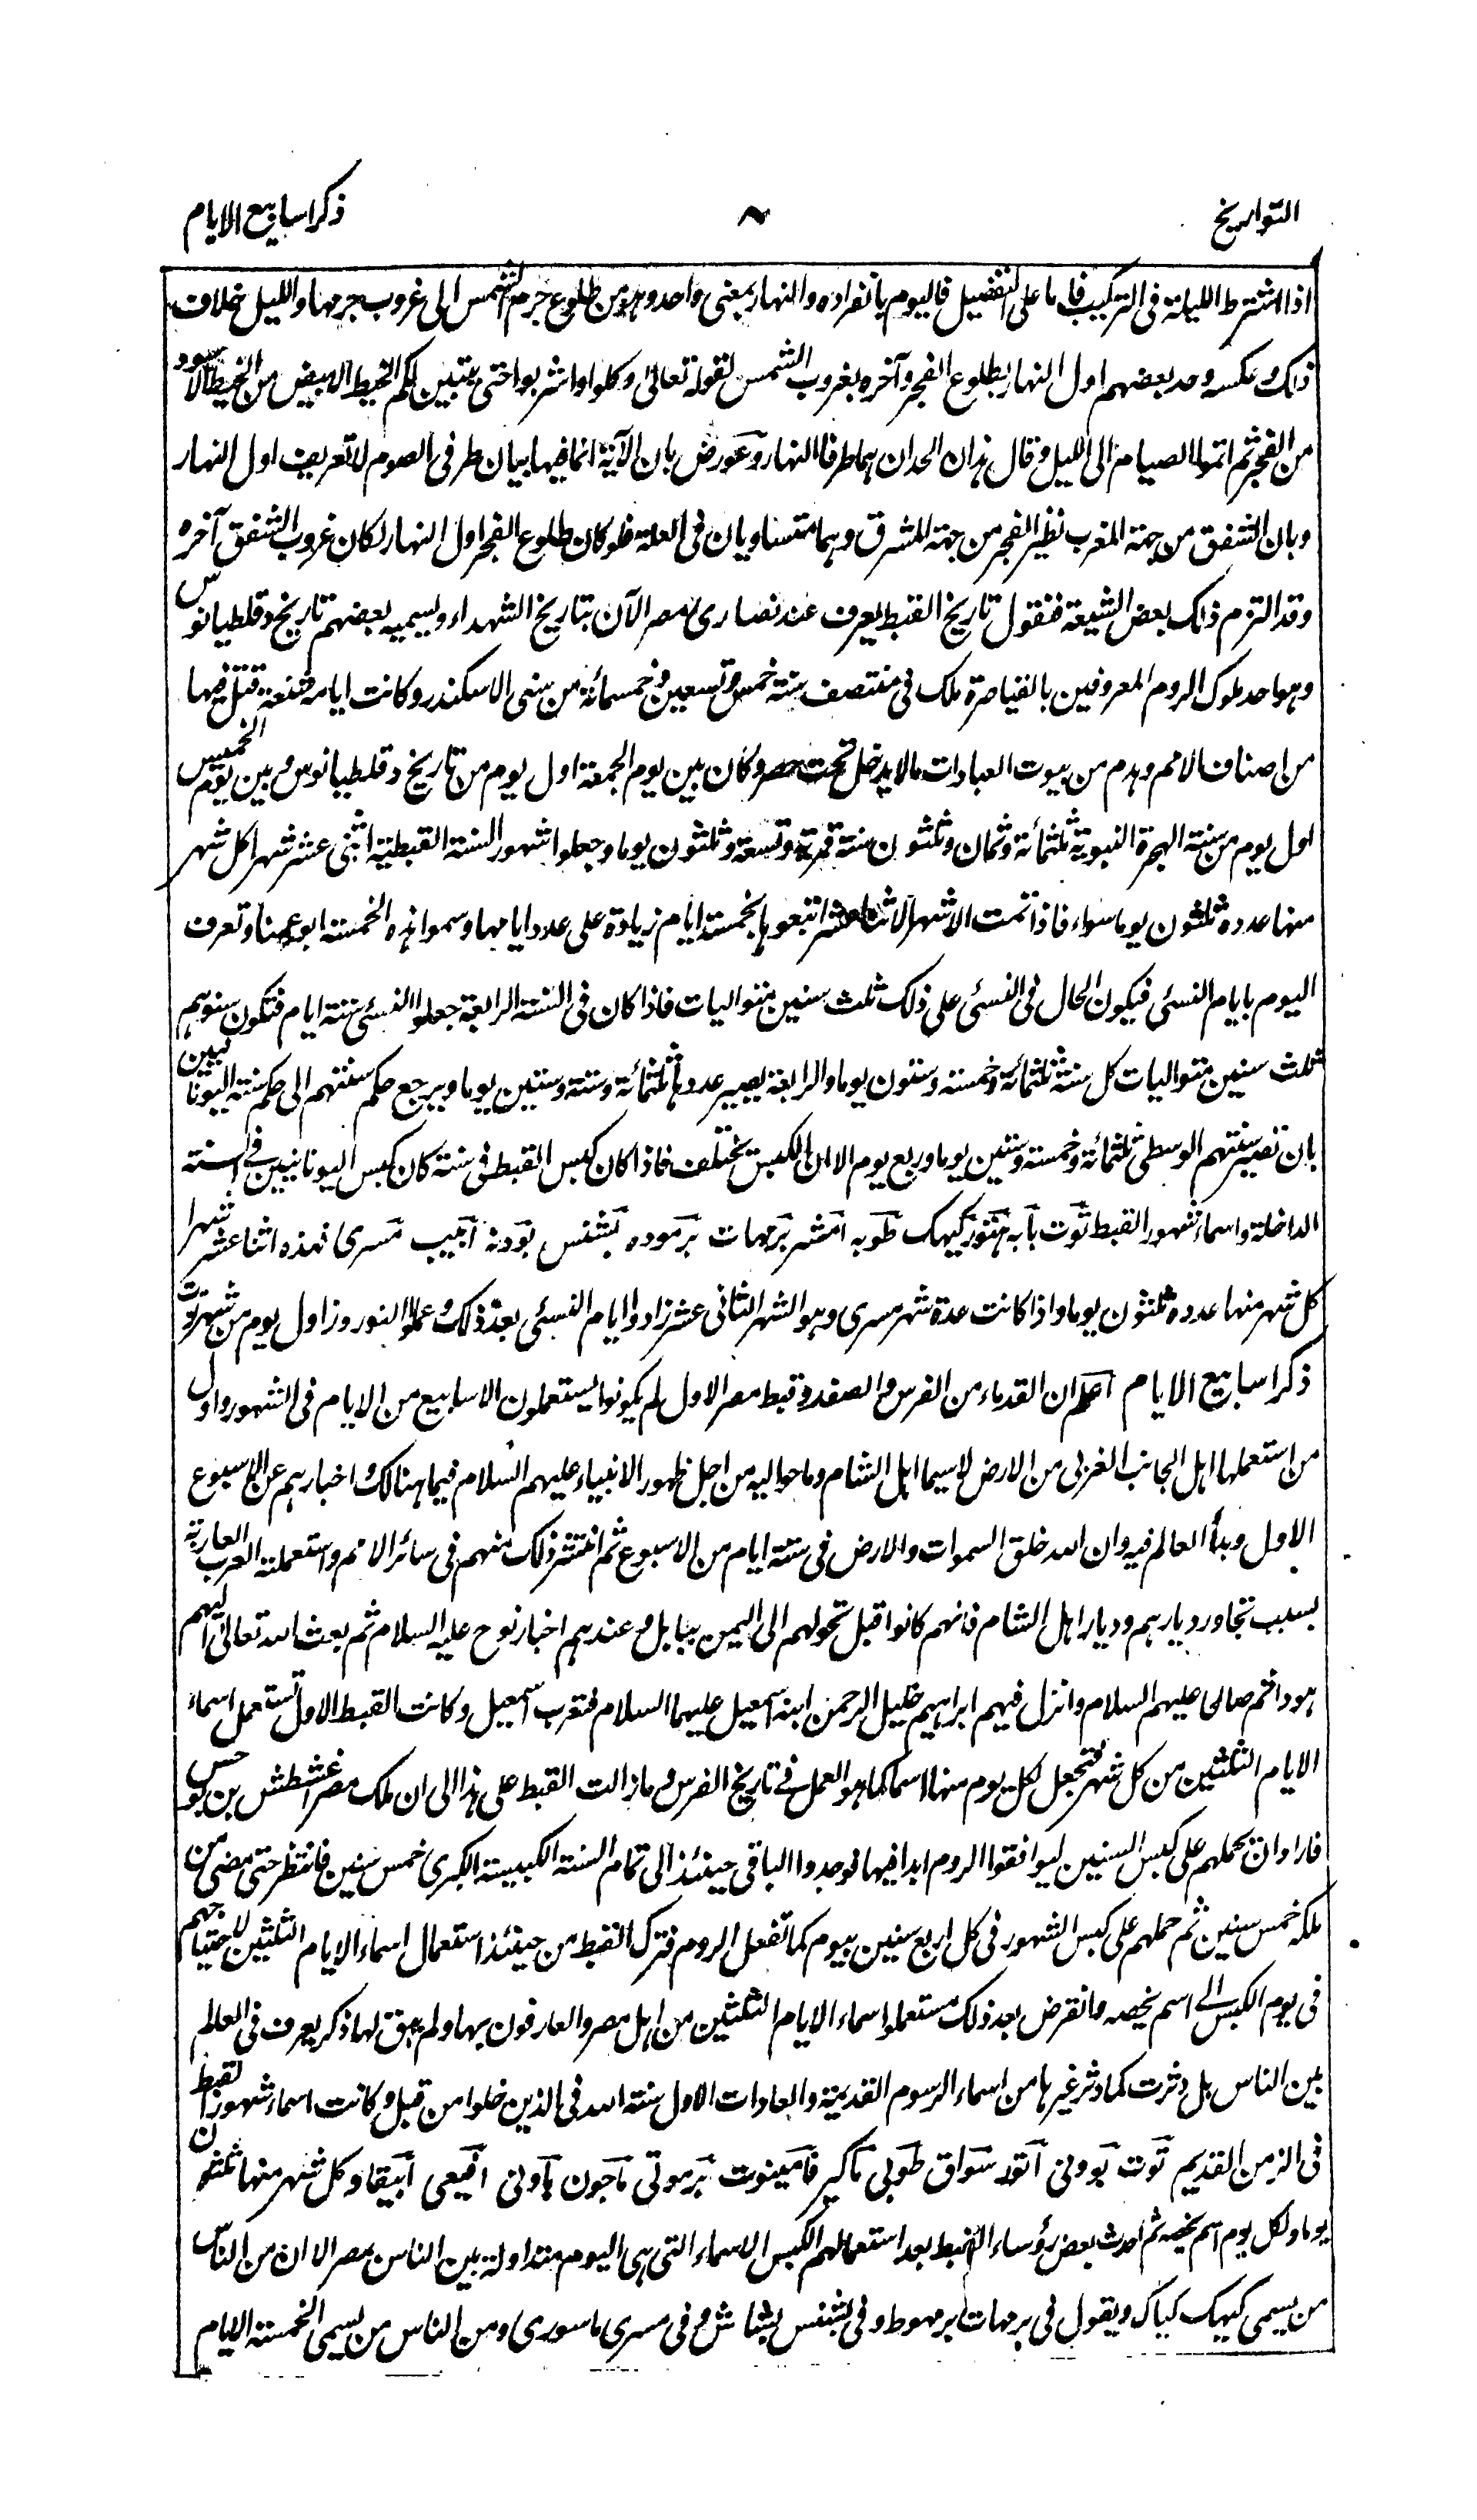 التواريخ ~ ذكر اسابيع الايام
اذا اشترط الليلة فى التركيب فاما على التفصيل فاليوم بانفراده والنهار بمعنى واحد وهو من طلوع جرم الشمس الى غروب جرمها والليل خلاف
ذلك وعكسه وحد بعضهم اول النهار بطلوع الفجر وآخره بغروب الشمس لقوله تعالى وكلوا واشربوا حتى يتبين لكم الخيط الابيض من الخيط الاسود
من الفجر ثم اتموا الصيام الى الليل وقال هذان الحدان هما طرفا النهار وعورض بان الآية انما فيها بيان طرفى الصوم لا تعريف اول النهار
وبان الشفق من جهة المغرب نظير الفجر من جهة المشرق وهما متساويان فى العلة فلو كان طلوع الفجر اول النهار لكان غروب الشفق آخره
وقد التزم ذلك بعض الشيعة فنقول تاريخ القبط يعرف عند نصارى مصر الآن بتاريخ الشهداء ويسميه بعضهم تاريخ دقلطيانوس
وهو احد ملوك الروم المعروفين بالقياصرة ملك فى منتصف سنة خمس وتسعين وخمسمائة من سنى الاسكندر وكانت ايامه شنعة قتل فيها
من اصناف الامم وهدم من بيوت العبادات مالا يدخل تحت حصر وكان بين يوم الجمعة اول يوم من تاريخ دقلطيانوس وبين يوم الخميس
اول يوم من سنة الهجرة النبوية ثلثمائة وثمان وثلثون سنة قمرية وتسعة وثلثون يوما وجعلوا شهور السنة القبطية اثنى عشر شهرا كل شهر
منها عدده ثلثون يوما سواء فاذا تمت الاشهر الاثنا عشر اتبعوها بخمسة ايام زيادة على عدد ايامها وسموا هذه الخمسة ابوعمنا وتعرف
اليوم بايام النسئ فيكون الحال فى النسئ على ذلك ثلث سنين متواليات فاذا كان فى السنة الرابعة جعلوا النسئ ستة ايام فتكون سنوهم
ثلث سنين متواليات كل سنة ثلثمائة وخمسة وستون يوما والرابعة يصير عددها ثلثمائة وستة وستين يوما ويرجع حكم سنتهم الى حكم سنة اليونانيين
بان تصير سنتهم الوسطى ثلثمائة وخمسة وستين يوما وربع يوم الا ان الكبس يختلف فاذا كان كبس القبط فى سنة كان كبس اليونانيين فى السنة
الداخلة واسماء شهور القبط توت بابه هتور كيهك طوبه امشر برمهات برموده بشنس بودنه ابيب مسرى فهذه اثنا عشر شهرا
كل شهر منها عدده ثلثون يوما واذا كانت عدة شهر مسرى وهو الشهر الثانى عشر زادوا ايام النسئ بعد ذلك وعملوا النوروز اول يوم من شهر توت
ذكر اسابيع الايام اعلم ان القدماء من الفرس والصغد وقبط مصر الاول لم يكونوا يستعملون الاسابيع من الايام فى الشهور واول
من استعملها اهل الجانب الغربى من الارض لاسيما اهل الشام وما حواليه من اجل ظهور الانبياء عليهم السلام فيما هنالك واخبارهم عن الاسبوع
الاول وبدأ العالم فيه وان الله خلق السموات والارض فى ستة ايام من الاسبوع ثم انتشر ذلك منهم فى سائر الامم واستعملته العرب العاربة
بسبب تجاور ديارهم وديار اهل الشام فانهم كانوا قبل تحولهم الى اليمن ببابل وعندهم اخبار نوح عليه السلام ثم بعث الله تعالى اليهم
هودا ثم صالحا عليهم السلام وانزل فيهم ابراهيم خليل الرحمن ابنه اسمعيل عليهما السلام فتعرب اسمعيل وكانت القبط الاول تستعمل اسماء
الايام الثلثين من كل شهر فتجعل لكل يوم منها اسما كما هو العمل فى تاريخ الفرس وما زالت القبط على هذا الى ان ملك مصر اغشطش بن بوحس
فاراد ان يحملهم على كبس السنين ليوافقوا الروم ابدا فيها فوجدوا الباقى حينئذ الى تمام السنة الكبيسة الكبرى خمس سنين فانتظر حتى مضى من
ملكه خمس سنين ثم حملهم على كبس الشهور فى كل اربع سنين بيوم كما تفعل الروم فترك القبط من حينئذ استعمال اسماء الايام الثلثين لاحتياجهم
فى يوم الكبس الى اسم يخصه وانقرض بعد ذلك مستعملوا اسماء الايام الثلثين من اهل مصر والعارفون بها ولم يبق لها ذكر يعرف فى العالم
بين الناس بل دثرت كما دثر غيرها من اسماء الرسوم القديمة والعادات الاول سنة الله فى الذين خلوا من قبل وكانت اسماء شهور القبط
فى الزمن القديم توت بوونى اتور سواق طوبى ماكير فامينوت برموتى باجون باونى افيعى ابيقا وكل شهر منها ثلثون
يوما ولكل يوم اسم يخصه ثم احدث بعض رؤساء القبط بعد استعمالهم الكبس الاسماء التى هى اليوم متداولة بين الناس بمصر الا ان من الناس
من يسمى كيهك كياك ويقول فى برمهات برمهوط وفى بشنس بشانش وفى مسرى ماسورى ومن الناس من يسمى الخمسة الايام